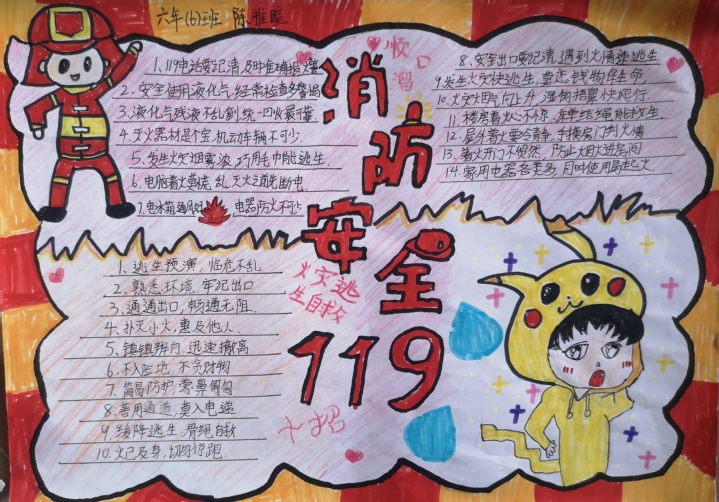 六年(6)班 陈雅暄
消防安全
119
顺口溜
1、119电话要记清,及时准确报火警
2、安全使用液化气,经常检查多警惕
3、液化气残液不乱倒,统一回收最可靠
4、灭火器材是个宝,机动车辆不可少.
5、发生火灾烟雾浓,巧用毛巾能逃生.
6、电脑着火莫慌乱,灭火之前先断电.
7、电冰箱 电器防火不可少
8、安全出口要记清,遇到火情速逃生
9、发生火灾快逃生,莫恋钱物保生命
10、火灾烟气向上升,湿物捂鼻快爬行
11、楼房着火心不惊,床单结绳能救生
12、屋外着火要冷静,手摸房门判火情
13、着火开门不要忙然,防止烟火进房间
14、家用电器容量多,同时使用易起火.
火灾逃生自救
十招
1、逃生预演,临危不乱
2、熟悉环境,牢记出口
3、通道出口,畅通无阻
4、扑灭小火,惠及他人
5、镇静辨向,迅速撤离
6、不入险地,不贪财物
7、简易防护,蒙鼻匍匐
8、善用通道,莫入电递
9、缓降逃生,滑绳自救
10、火已及身,切勿惊跑